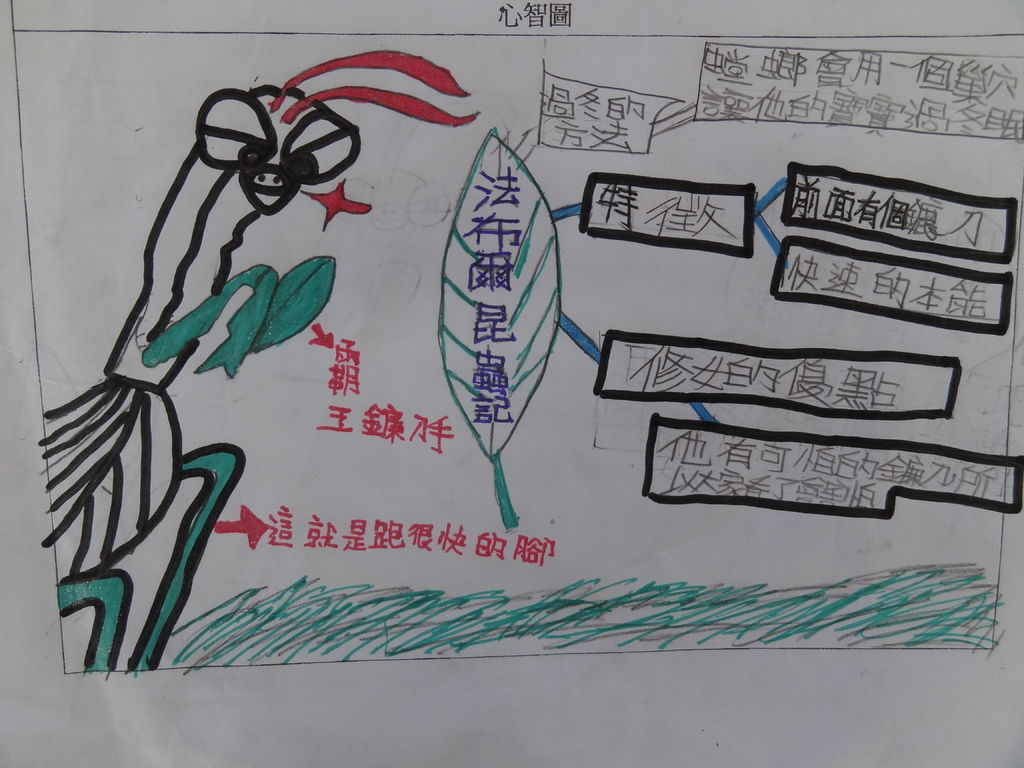 心智圖
過冬的
方法
螳螂會用一個巢穴
讓他的寶寶過冬眠
法布爾昆蟲記
特徵
前面有個鐮刀
快速的本能
修女的優點
霸
王鐮刀手
他有可怕的鐮刀所
以大家看了會怕
這就是跑很快的腳